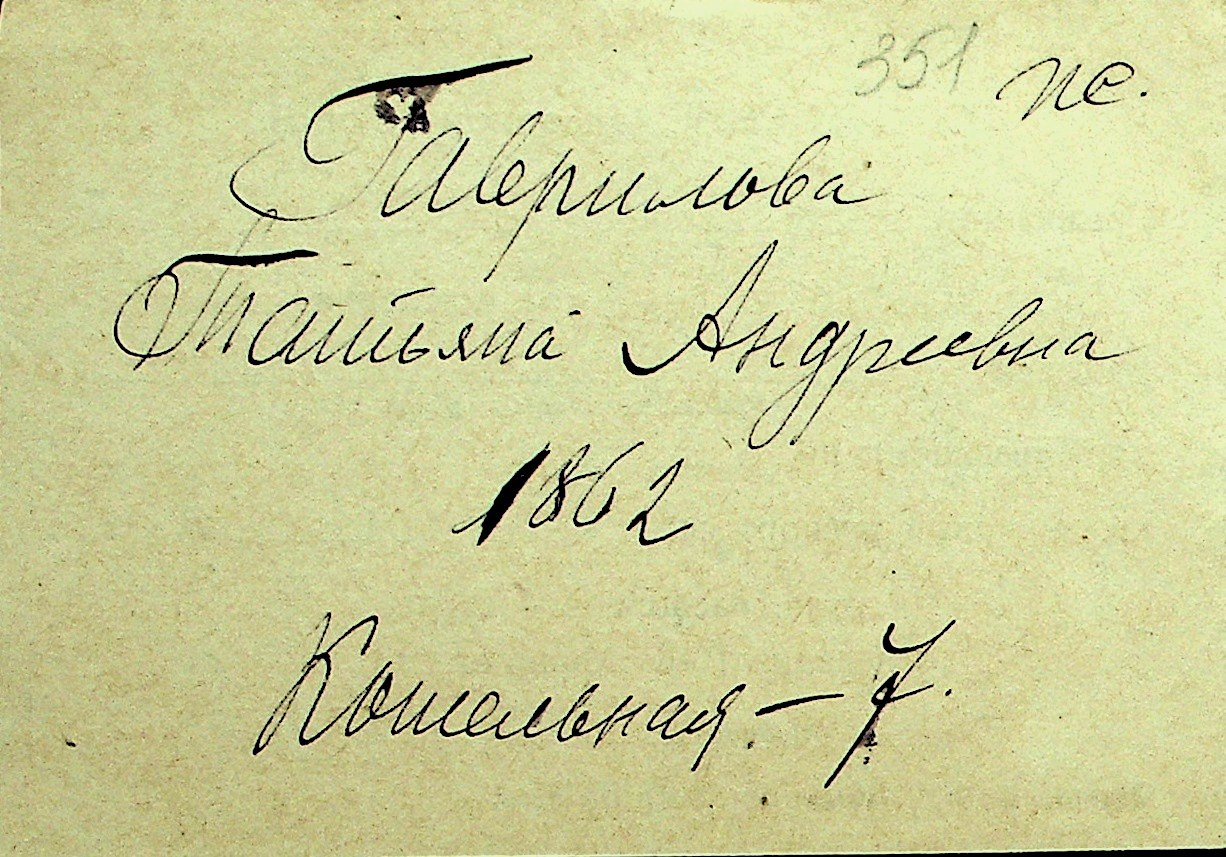 351 пе.
Гаврилова
Татьяна Андреевна
1862
Котельная - 7.